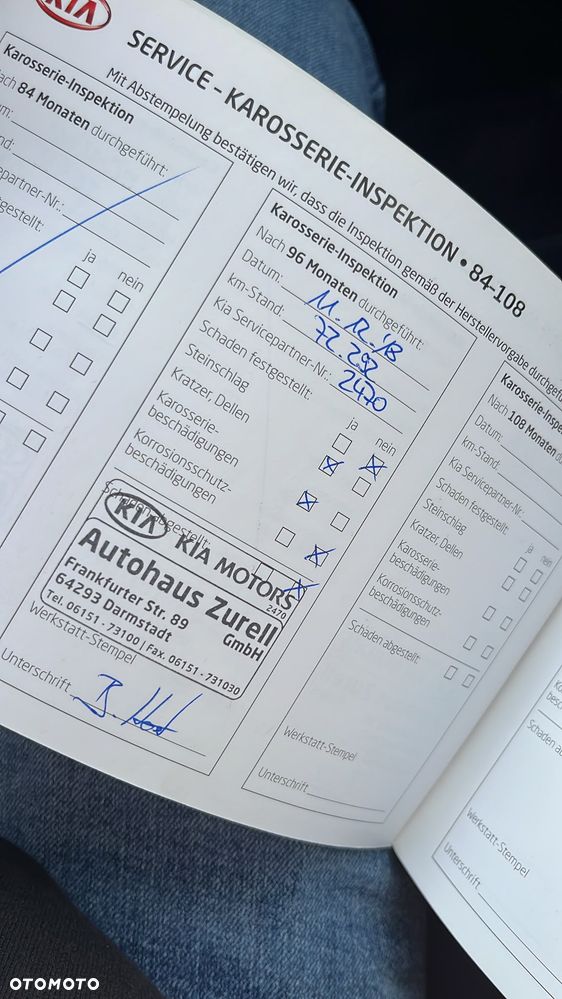 KIA
SERVICE - KAROSSERIE-INSPEKTION • 84-108
Mit Abstempelung bestätigen wir, dass die Inspektion gemäß der Herstellervorgabe durchgefü
Karosserie-Inspektion
ach 84 Monaten durchgeführt:
um:
tand:
cepartner-Nr.:
stgestellt:
ja nein
Karosserie-Inspektion
Nach 96 Monaten durchgeführt:
Datum: 11.12.'18
km-Stand: 72.292
Kia Servicepartner-Nr.: 2470
Schaden festgestellt:
ja nein
Steinschlag
Kratzer, Dellen
Karosserie-
beschädigungen
Korrosionsschutz-
beschädigungen
KIA KIA MOTORS
2470
Autohaus Zurell
GmbH
Frankfurter Str. 89
64293 Darmstadt
Tel. 06151 - 73100 | Fax. 06151 - 731030
Werkstatt-Stempel
Unterschrift
Karosserie-Inspe
Nach 108 Monaten
Datum:
km-Stand:
Kia Servicepartner-Nr.:
Schaden festgestellt:
ja nein
Steinschlag
Kratzer, Dellen
Karosserie-
beschädigungen
Korrosionsschutz-
beschädigungen
Schäden abgestellt:
Werkstatt-Stempel
Unterschrift
Schaden ab
Werkstatt-Stempel
Unterschrift
OTOMOTO